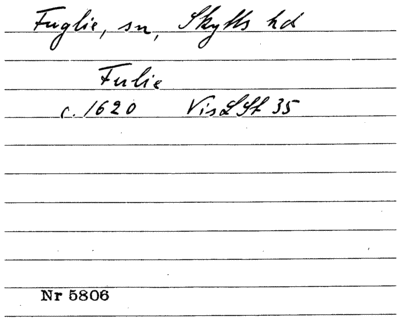 Fuglie, sn, Skytts hd
Fulie
c. 1620 VisLSt 35
Nr 5806